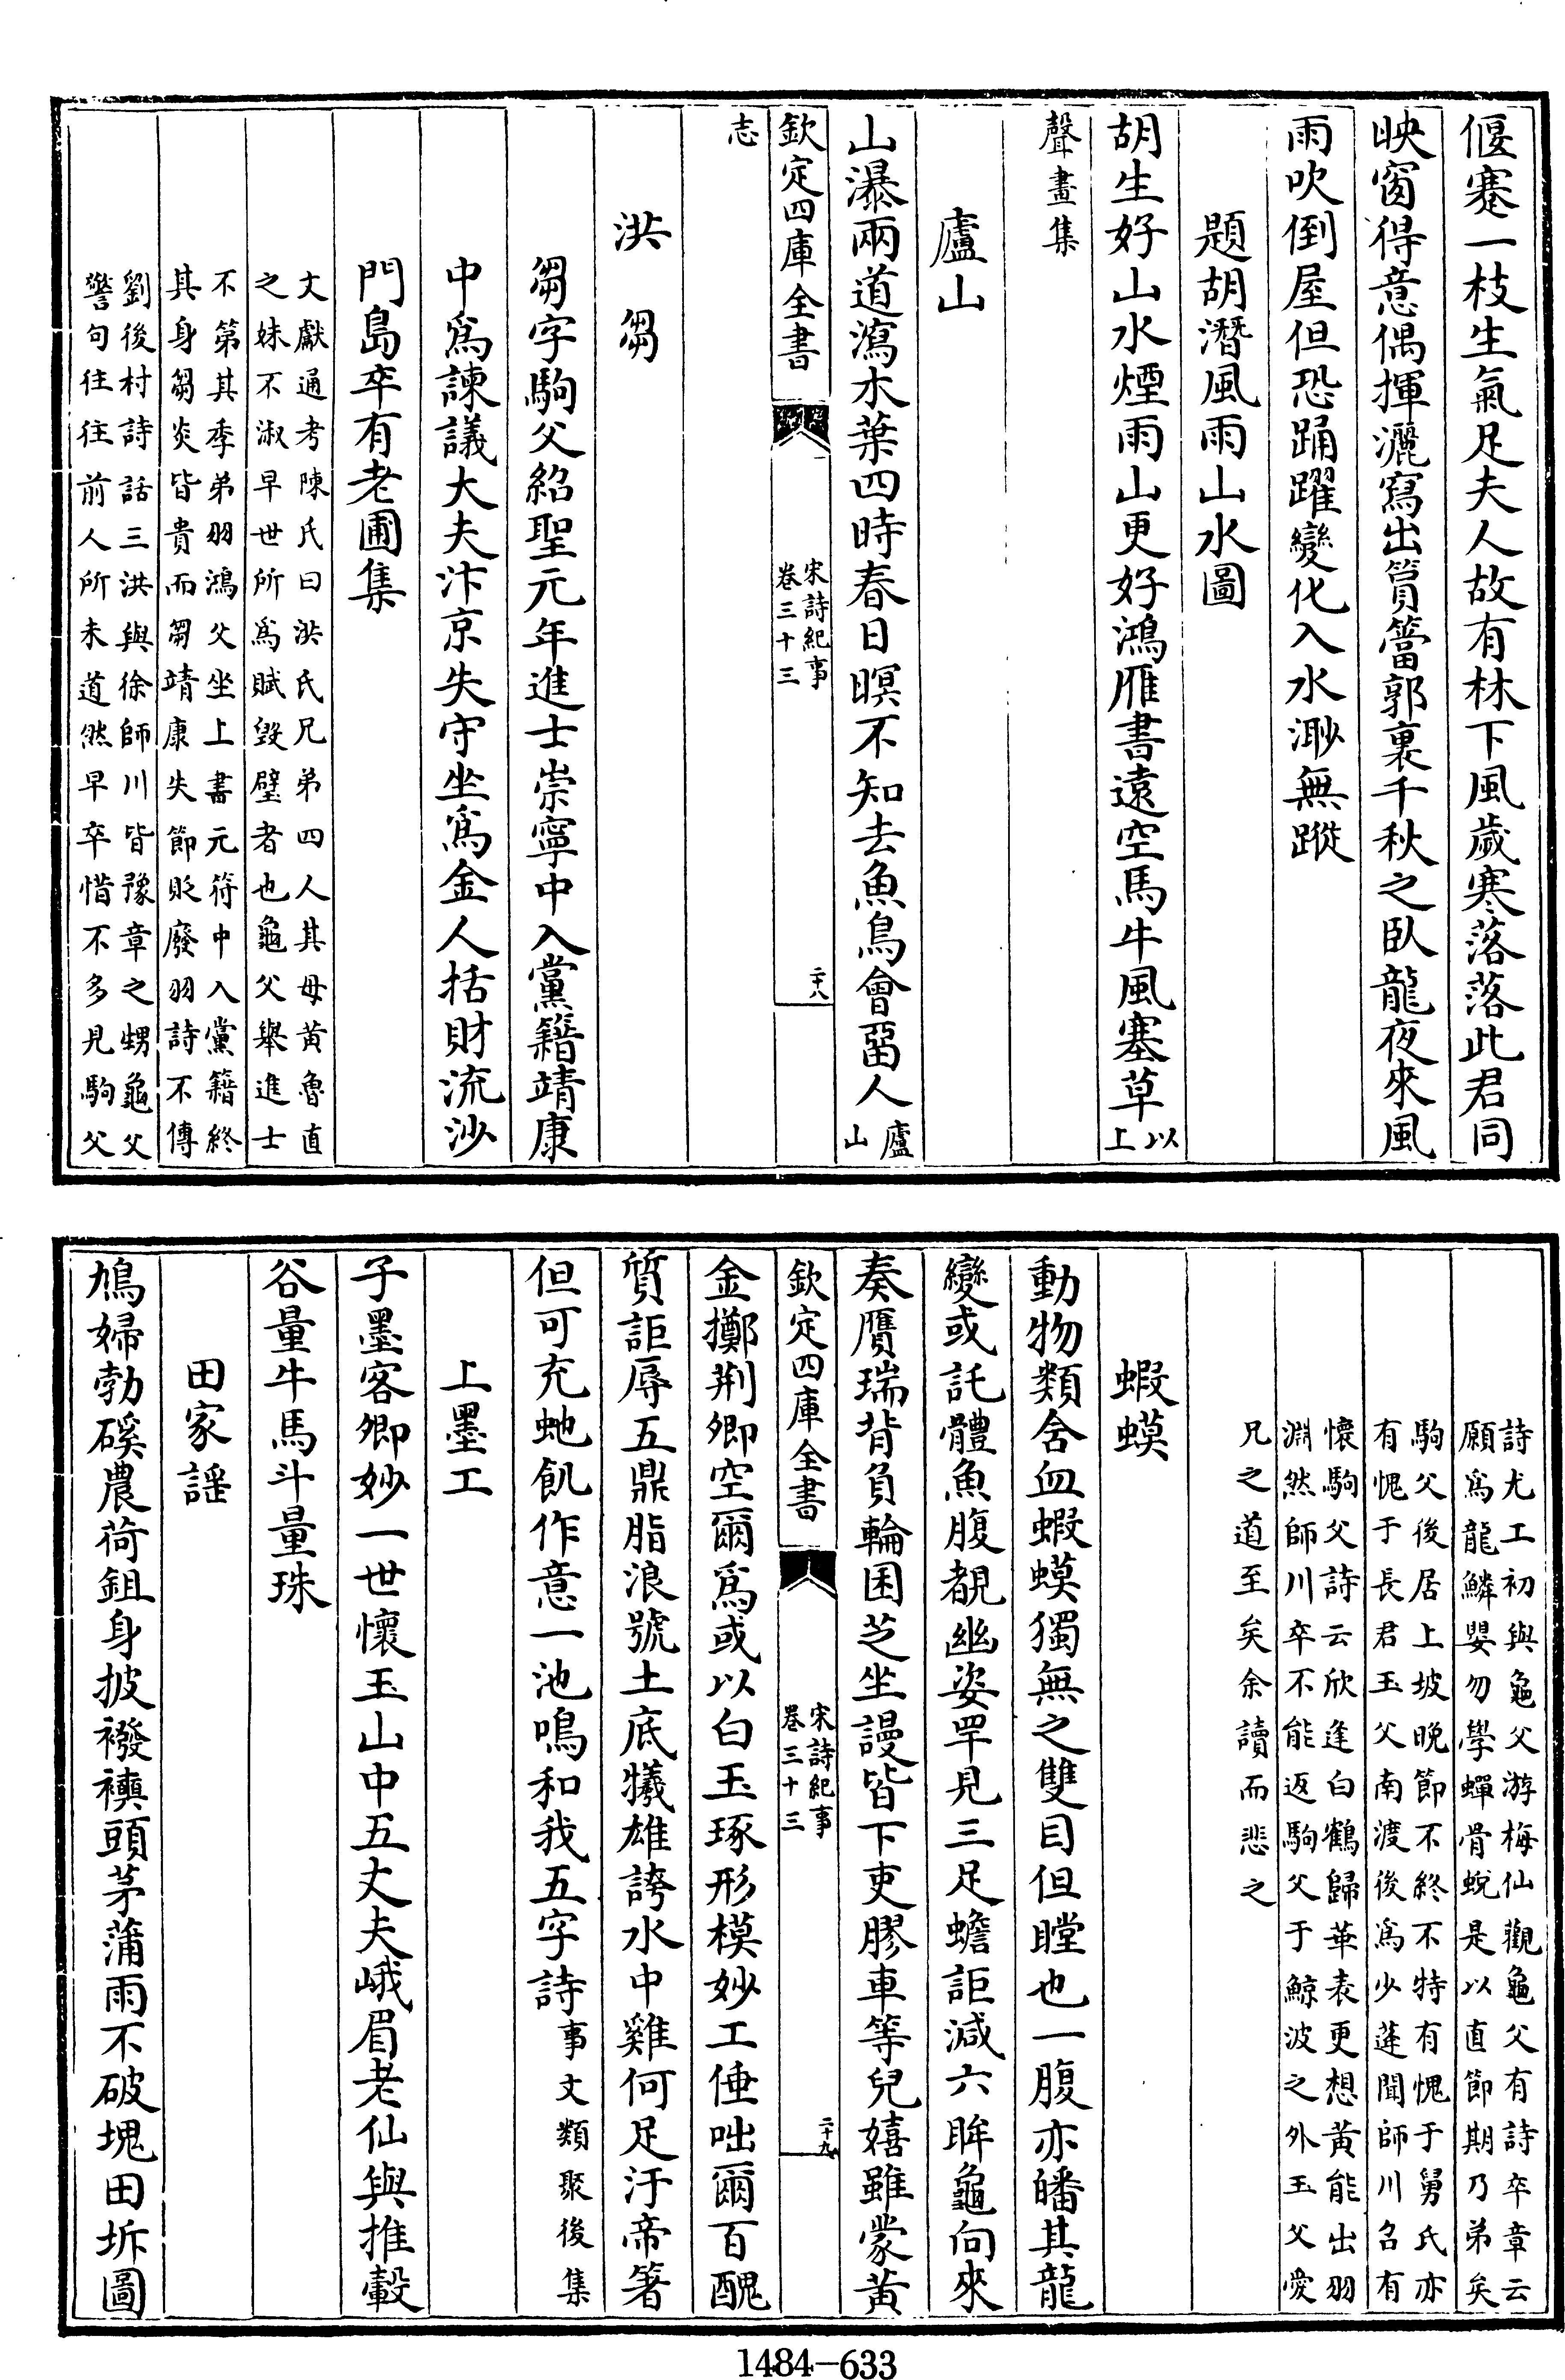 偃蹇一枝生氣足夫人故有林下風歲寒落落此君同
映窗得意偶揮灑寫出篔簹郭裏千秋之臥龍夜來風
雨吹倒屋但恐踊躍變化入水渺無蹤
題胡潛風雨山水圖
胡生好山水煙雨山更好鴻雁書遠空馬牛風塞草以上
聲畫集
廬山
山瀑兩道瀉木葉四時春日暝不知去魚鳥會留人廬山
欽定四庫全書
宋詩紀事
卷三十三
二十八
志
洪芻
芻字駒父紹聖元年進士崇寧中入黨籍靖康
中爲諫議大夫汴京失守坐爲金人括財流沙
門島卒有老圃集
文獻通考陳氏曰洪氏兄弟四人其母黃魯直
之妹不淑早世所爲賦毀璧者也龜父舉進士
不第其季弟羽鴻父坐上書元符中入黨籍終
其身芻炎皆貴而芻靖康失節貶廢羽詩不傳
劉後村詩話三洪與徐師川皆豫章之甥龜父
警句往往前人所未道然早卒惜不多見駒父
詩尤工初與龜父游梅仙觀龜父有詩卒章云
願爲龍鱗嬰勿學蟬骨蛻是以直節期乃弟矣
駒父後居上坡晚節不終不特有愧于舅氏亦
有愧于長君玉父南渡後爲少蓬聞師川召有
懷駒父詩云欣逢白鶴歸華表更想黃能出羽
淵然師川卒不能返駒父于鯨波之外玉父愛
兄之道至矣余讀而悲之
蝦蟆
動物類含血蝦蟆獨無之雙目但瞠也一腹亦皤其龍
變或託體魚腹覩幽姿罕見三足蟾詎減六眸龜向來
奏贗瑞背負輪囷芝坐謾皆下吏膠車等兒嬉雖蒙黃
欽定四庫全書
宋詩紀事
卷三十三
二十九
金擲荆卿空爾爲或以白玉琢形模妙工倕咄爾百醜
質詎辱五鼎脂浪號土底犧雄誇水中雞何足汙帝箸
但可充虵飢作意一池鳴和我五字詩事文類聚後集
上墨工
子墨客卿妙一世懷玉山中五丈夫峨眉老仙與推轂
谷量牛馬斗量珠
田家謡
鳩婦勃磎農荷鉏身披襏襫頭茅蒲雨不破塊田坼圖
1484-633